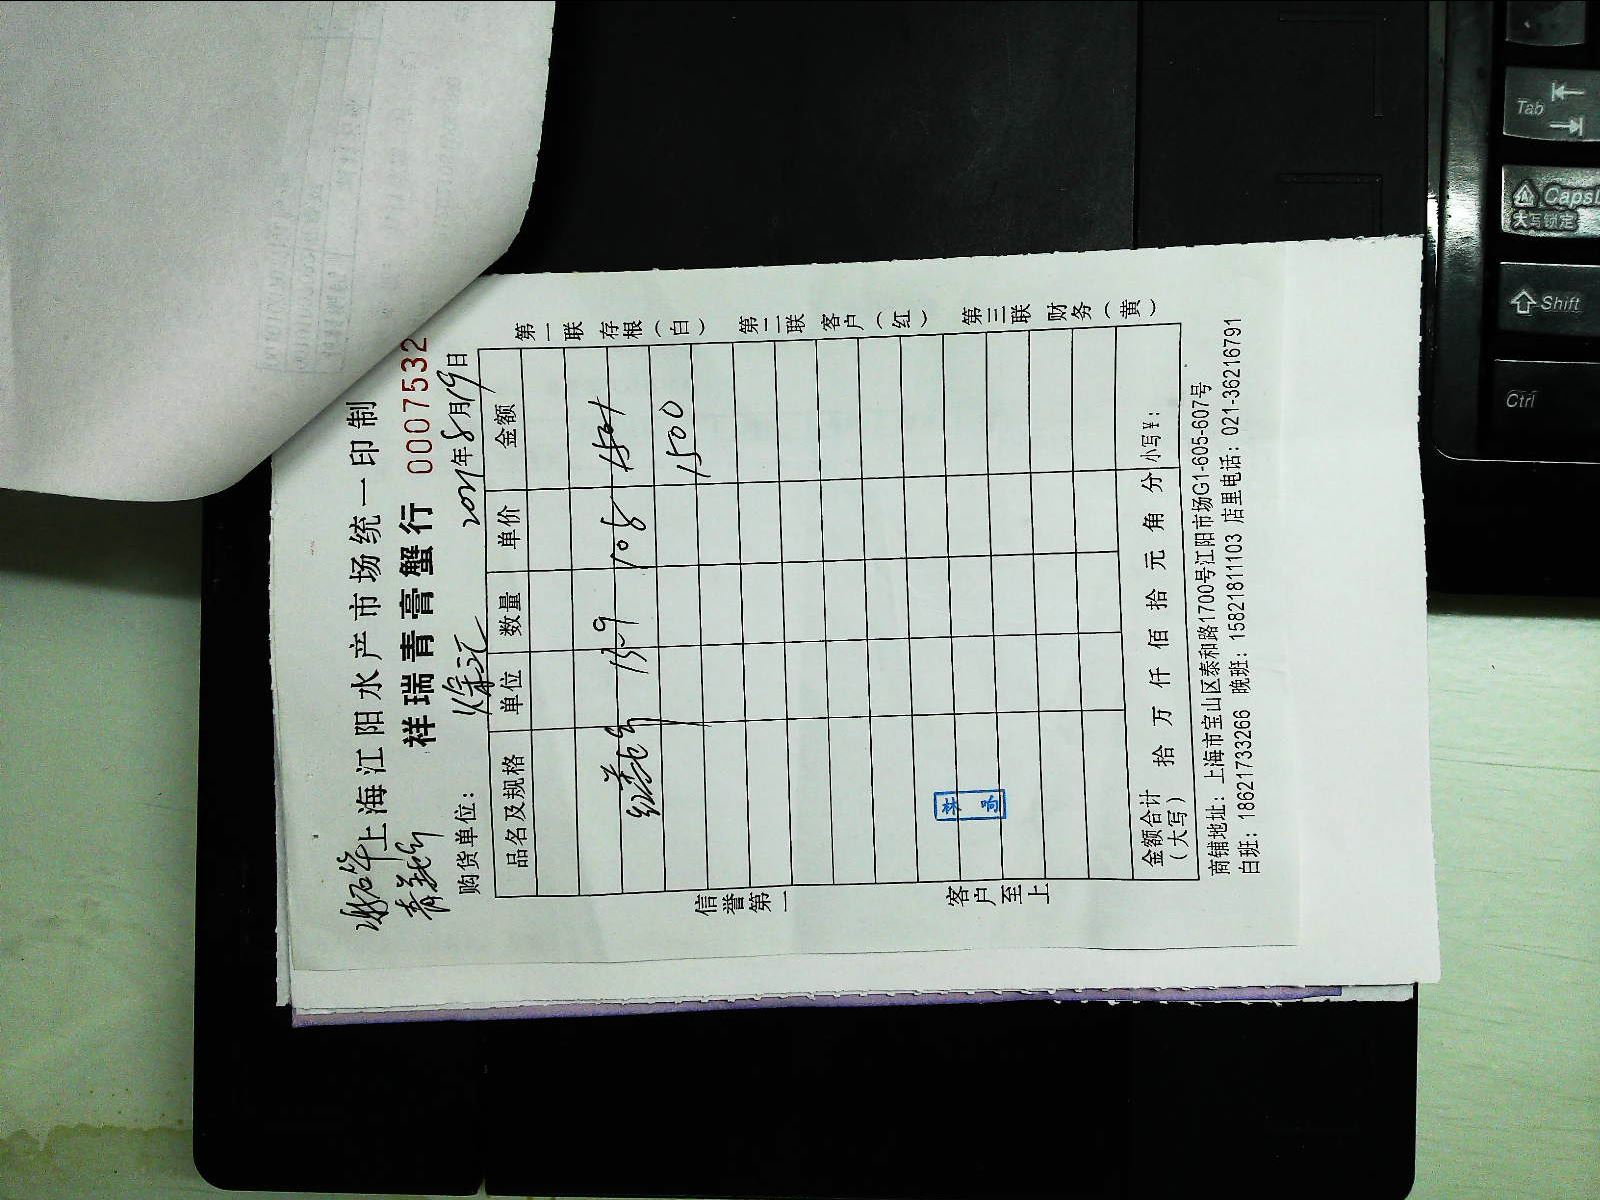 上海江阳水产市场统一印制
祥瑞青膏蟹行 0007532
购货单位： 2021年8月19日
品名及规格 单位 数量 单价 金额
13.9 108 1501
1500
金额合计（大写） 拾 万 仟 佰 拾 元 角 分 小写¥：
商铺地址：上海市宝山区泰和路1700号江阳市场G1-605-607号
白班：18621733266 晚班：15821811103 店里电话：021-36216791
信誉第一 客户至上
第一联 存根（白） 第二联 客户（红） 第三联 财务（黄）
Tab
CapsL
大写锁定
Shift
Ctrl